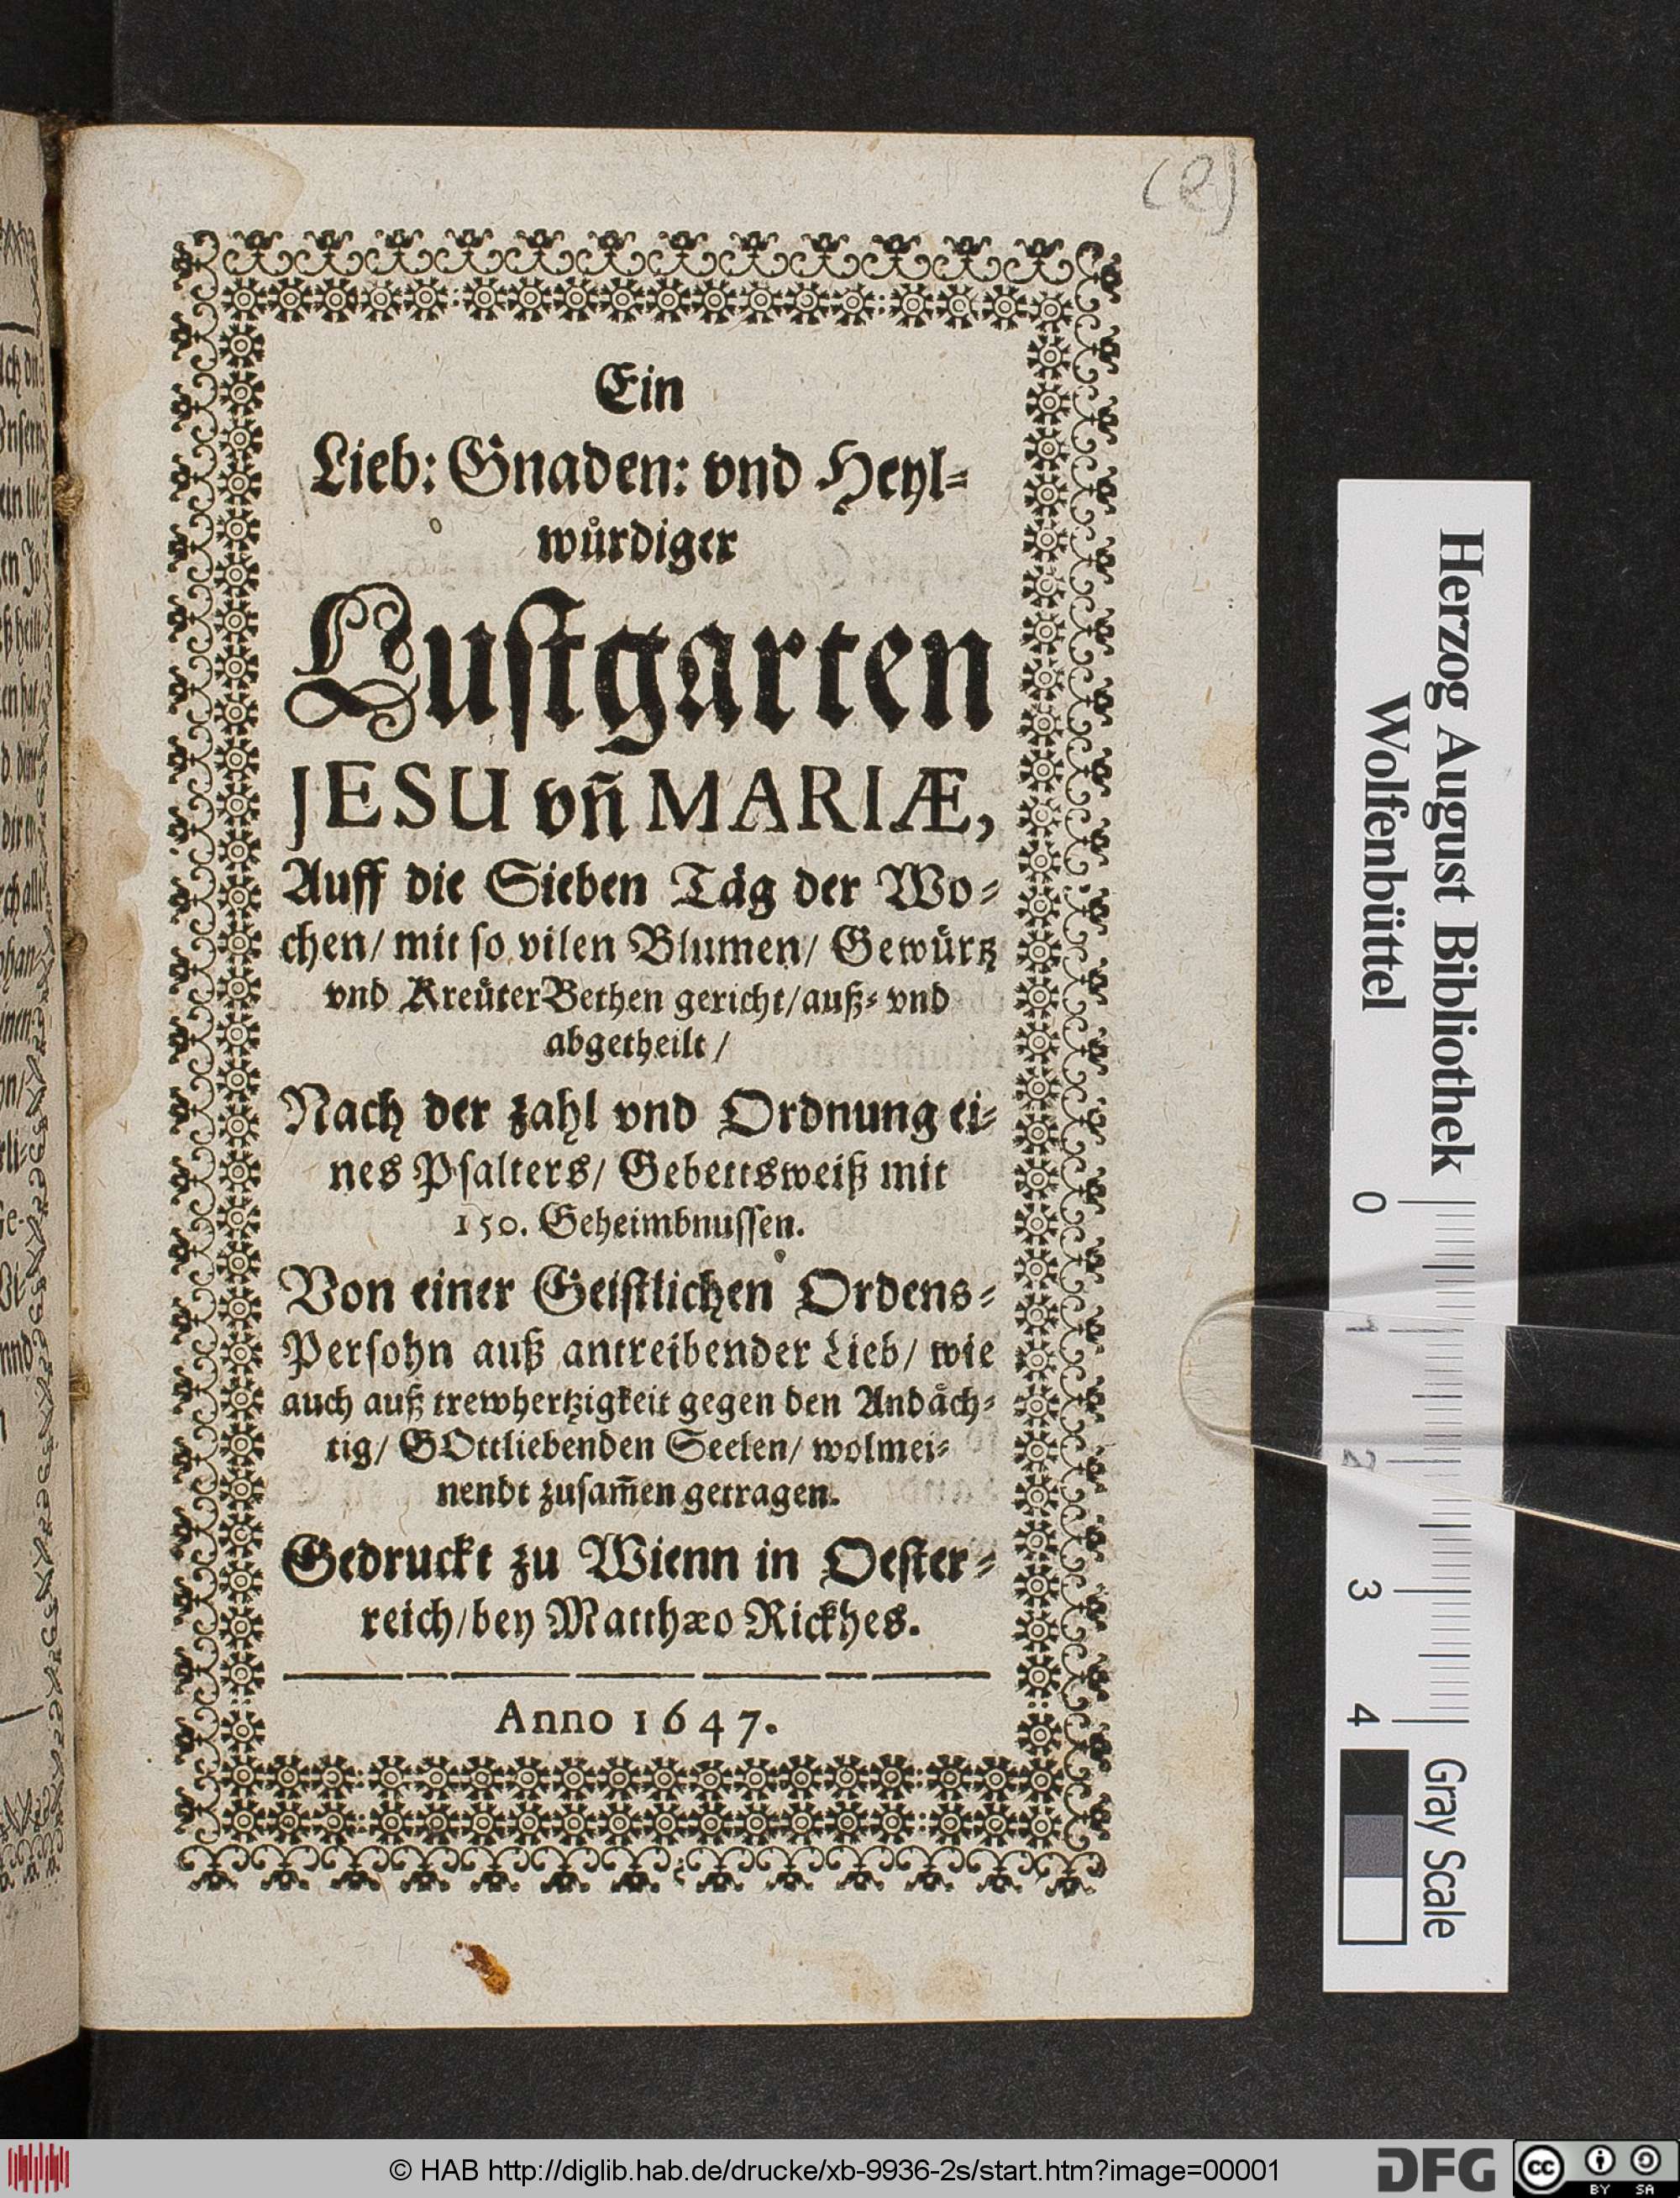 (2)
Ein
Lieb: Gnaden: vnd Heyl-
wuͤrdiger
Lustgarten
JESU vn̄ MARIÆ,
Auff die Sieben Taͤg der Wo-
chen/ mit so vilen Blumen/ Gewuͤrtz
vnd KreuͤterBethen gericht/auß- vnd
abgetheilt /
Nach der zahl vnd Ordnung ei-
nes Psalters/ Gebettsweiß mit
150. Geheimbnussen.
Von einer Geistlichen Ordens-
Persohn auß antreibender Lieb/ wie
auch auß trewhertzigkeit gegen den Andaͤch-
tig/ GOttliebenden Seelen/ wolmei-
nendt zusam̄en getragen.
Gedruckt zu Wienn in Oester-
reich/bey Matthæo Rickhes.
Anno 1647.
Herzog August Bibliothek
Wolfenbüttel
0
1
2
3
4
Gray Scale
© HAB http://diglib.hab.de/drucke/xb-9936-2s/start.htm?image=00001
DFG
cc
BY
SA